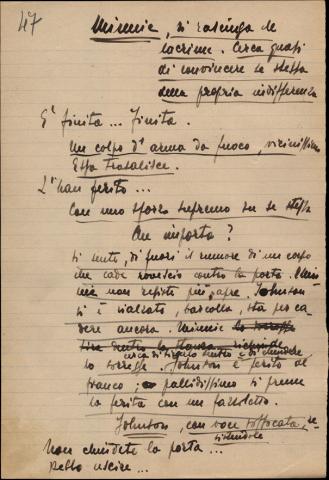 47
Minnie, si rasciuga le
lacrime. Cerca quasi
di convincere se stessa
della propria indifferenza
È finita... Finita.
Un colpo d'arma da fuoco, vicinissimo
Essa trasalisce.
L'han ferito...
Con uno sforzo supremo su se stessa
Che importa?
Si sente, di fuori il rumore di un corpo
che cade rovescio contro la porta. Min
nie non resiste più, apre. Johnson
si è rialzato, barcolla, sta per ca
dere ancora. Minnie lo sorregge
tira dentro la stanza
cerca di tirarlo dentro e di chiudere
lo sorregge. Johnson è ferito al
fianco; pallidissimo si preme
la ferita con un fazzoletto.
Johnson, con voce soffocata, re-
sistendole
Non chiudete la porta...
debbo uscire...